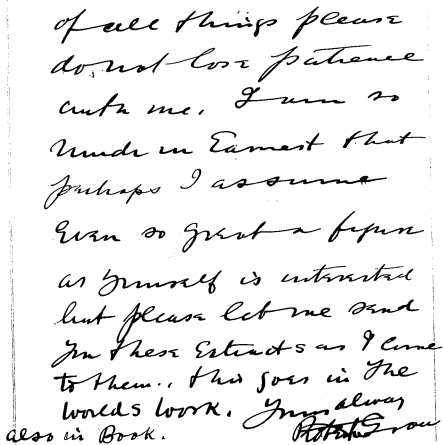 of all things please
do not lose patience
with me. I am so
much in Earnest that
perhaps I assume
Even so great a figure
as yourself is interested
but please let me send
you these Extracts as I come
to them.. this goes in The
worlds work. Yours always
also in Book. Robert